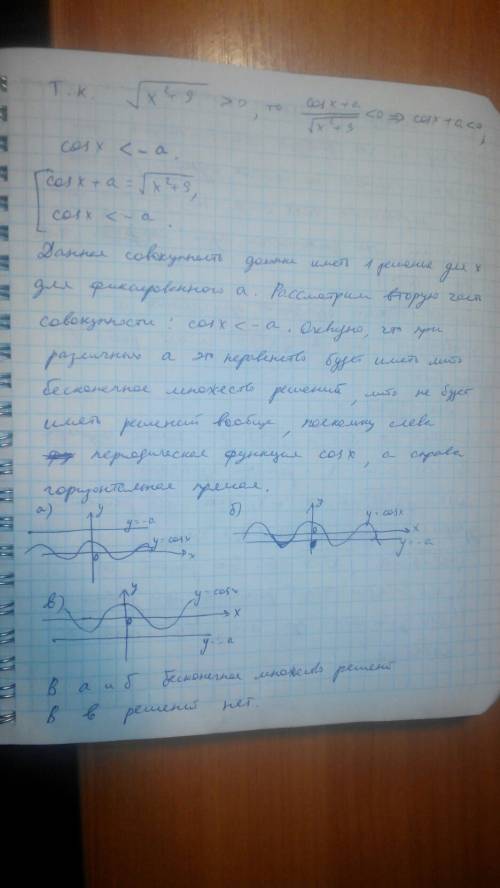 Т.к. √(x²+9) > 0, то (cosx+a)/√(x²+9) < 0 ⇒ cosx+a<0,
cosx < -a.
[cosx + a = √(x²+9),
cosx < -a.
Данная совокупность должна иметь 1 решение для x
для фиксированного a. Рассмотрим вторую часть
совокупности: cosx < -a. Очевидно, что при
различных a это неравенство будет иметь либо
бесконечное множество решений, либо не будет
иметь решений вообще, поскольку слева
периодическая функция cosx, а справа
горизонтальная прямая.
а) y y=-a y=cosx x 0
б) y y=cosx x y=-a 0
в) y y=cosx x y=-a 0
В а и б бесконечное множество решений
В в решений нет.